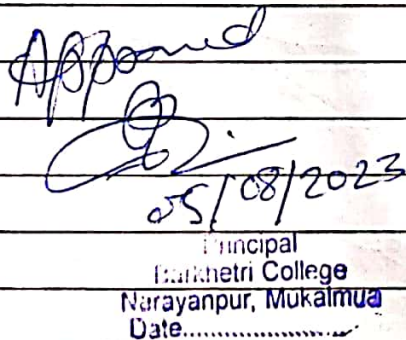 Approved
05/08/2023
Principal
Barkhetri College
Narayanpur, Mukalmua
Date....................